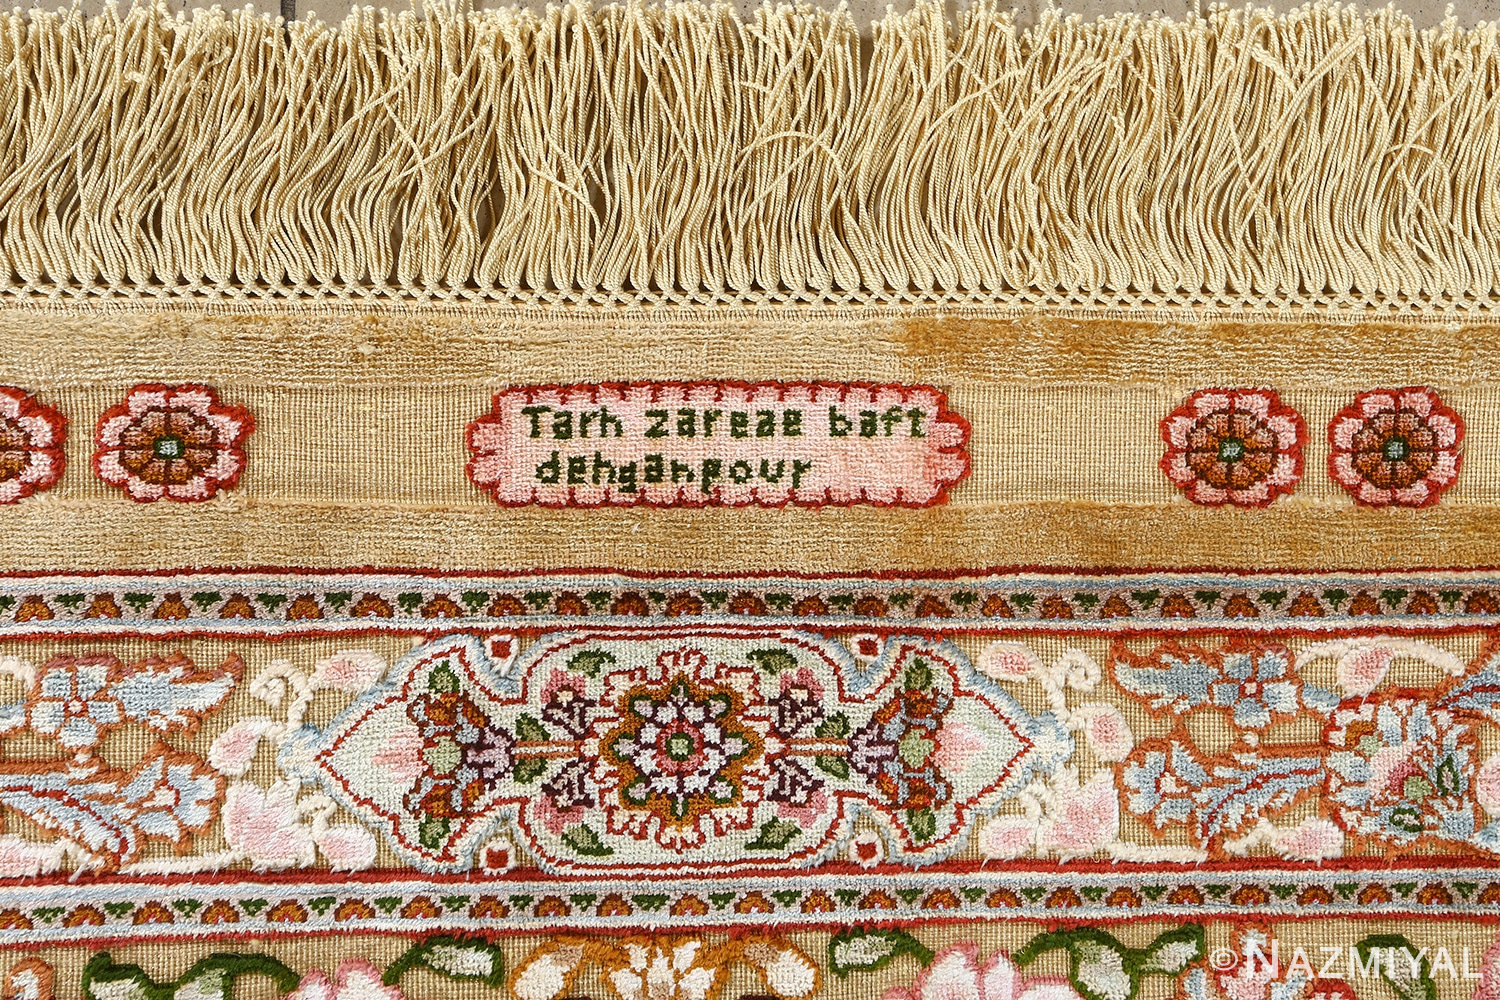 Tarh zareae baft
dehganpour
© NAZMIYAL